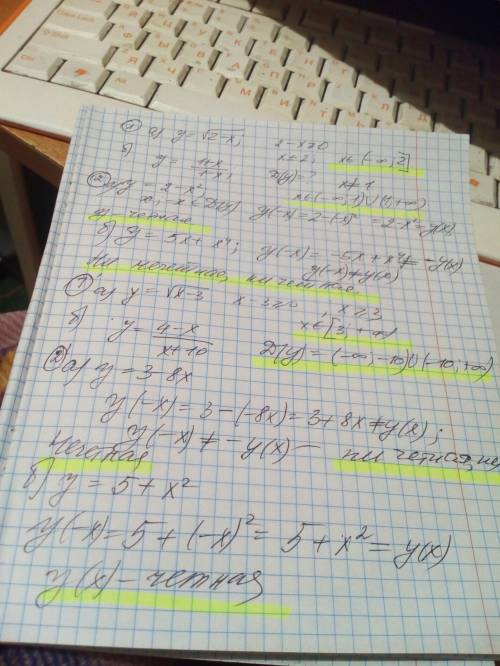 ① а) y = √2-x; 2-x≥0
x≤2; x∈(-∞; 2]
б) y = D(y)=? x≠1
x∈(-∞; 1)∪(1;+∞)
② а) y = 2-x²
x; -x∈D(y) y(-x) = 2-(-x)² = 2-x² = y(x),
y - четная
б) y = 5x+x⁴; y(-x) = -5x+x⁴ ≠ -y(x)
y(-x)≠y(x)
ни нечетная, ни четная.
① а) y = √x-3 x-3≥0; x≥3
x∈[3;+∞)
б) y = 4-x / x+10 D(y) = (-∞;-10)∪(-10;+∞)
② а) y = 3-8x
y(-x) = 3-(-8x) = 3+8x≠y(x);
y(-x)≠-y(x) - ни четная, ни
нечетная
б) y = 5+x²
y(-x) = 5+(-x)² = 5+x² = y(x)
y(x) - четная